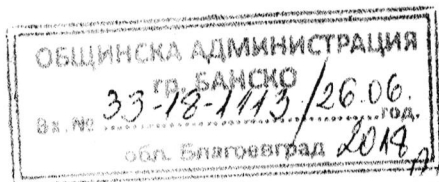 ОБЩИНСКА АДМИНИСТРАЦИЯ
гр. БАНСКО
Вх. № 33-18-1113/26.06. год.
обл. Благоевград 2018